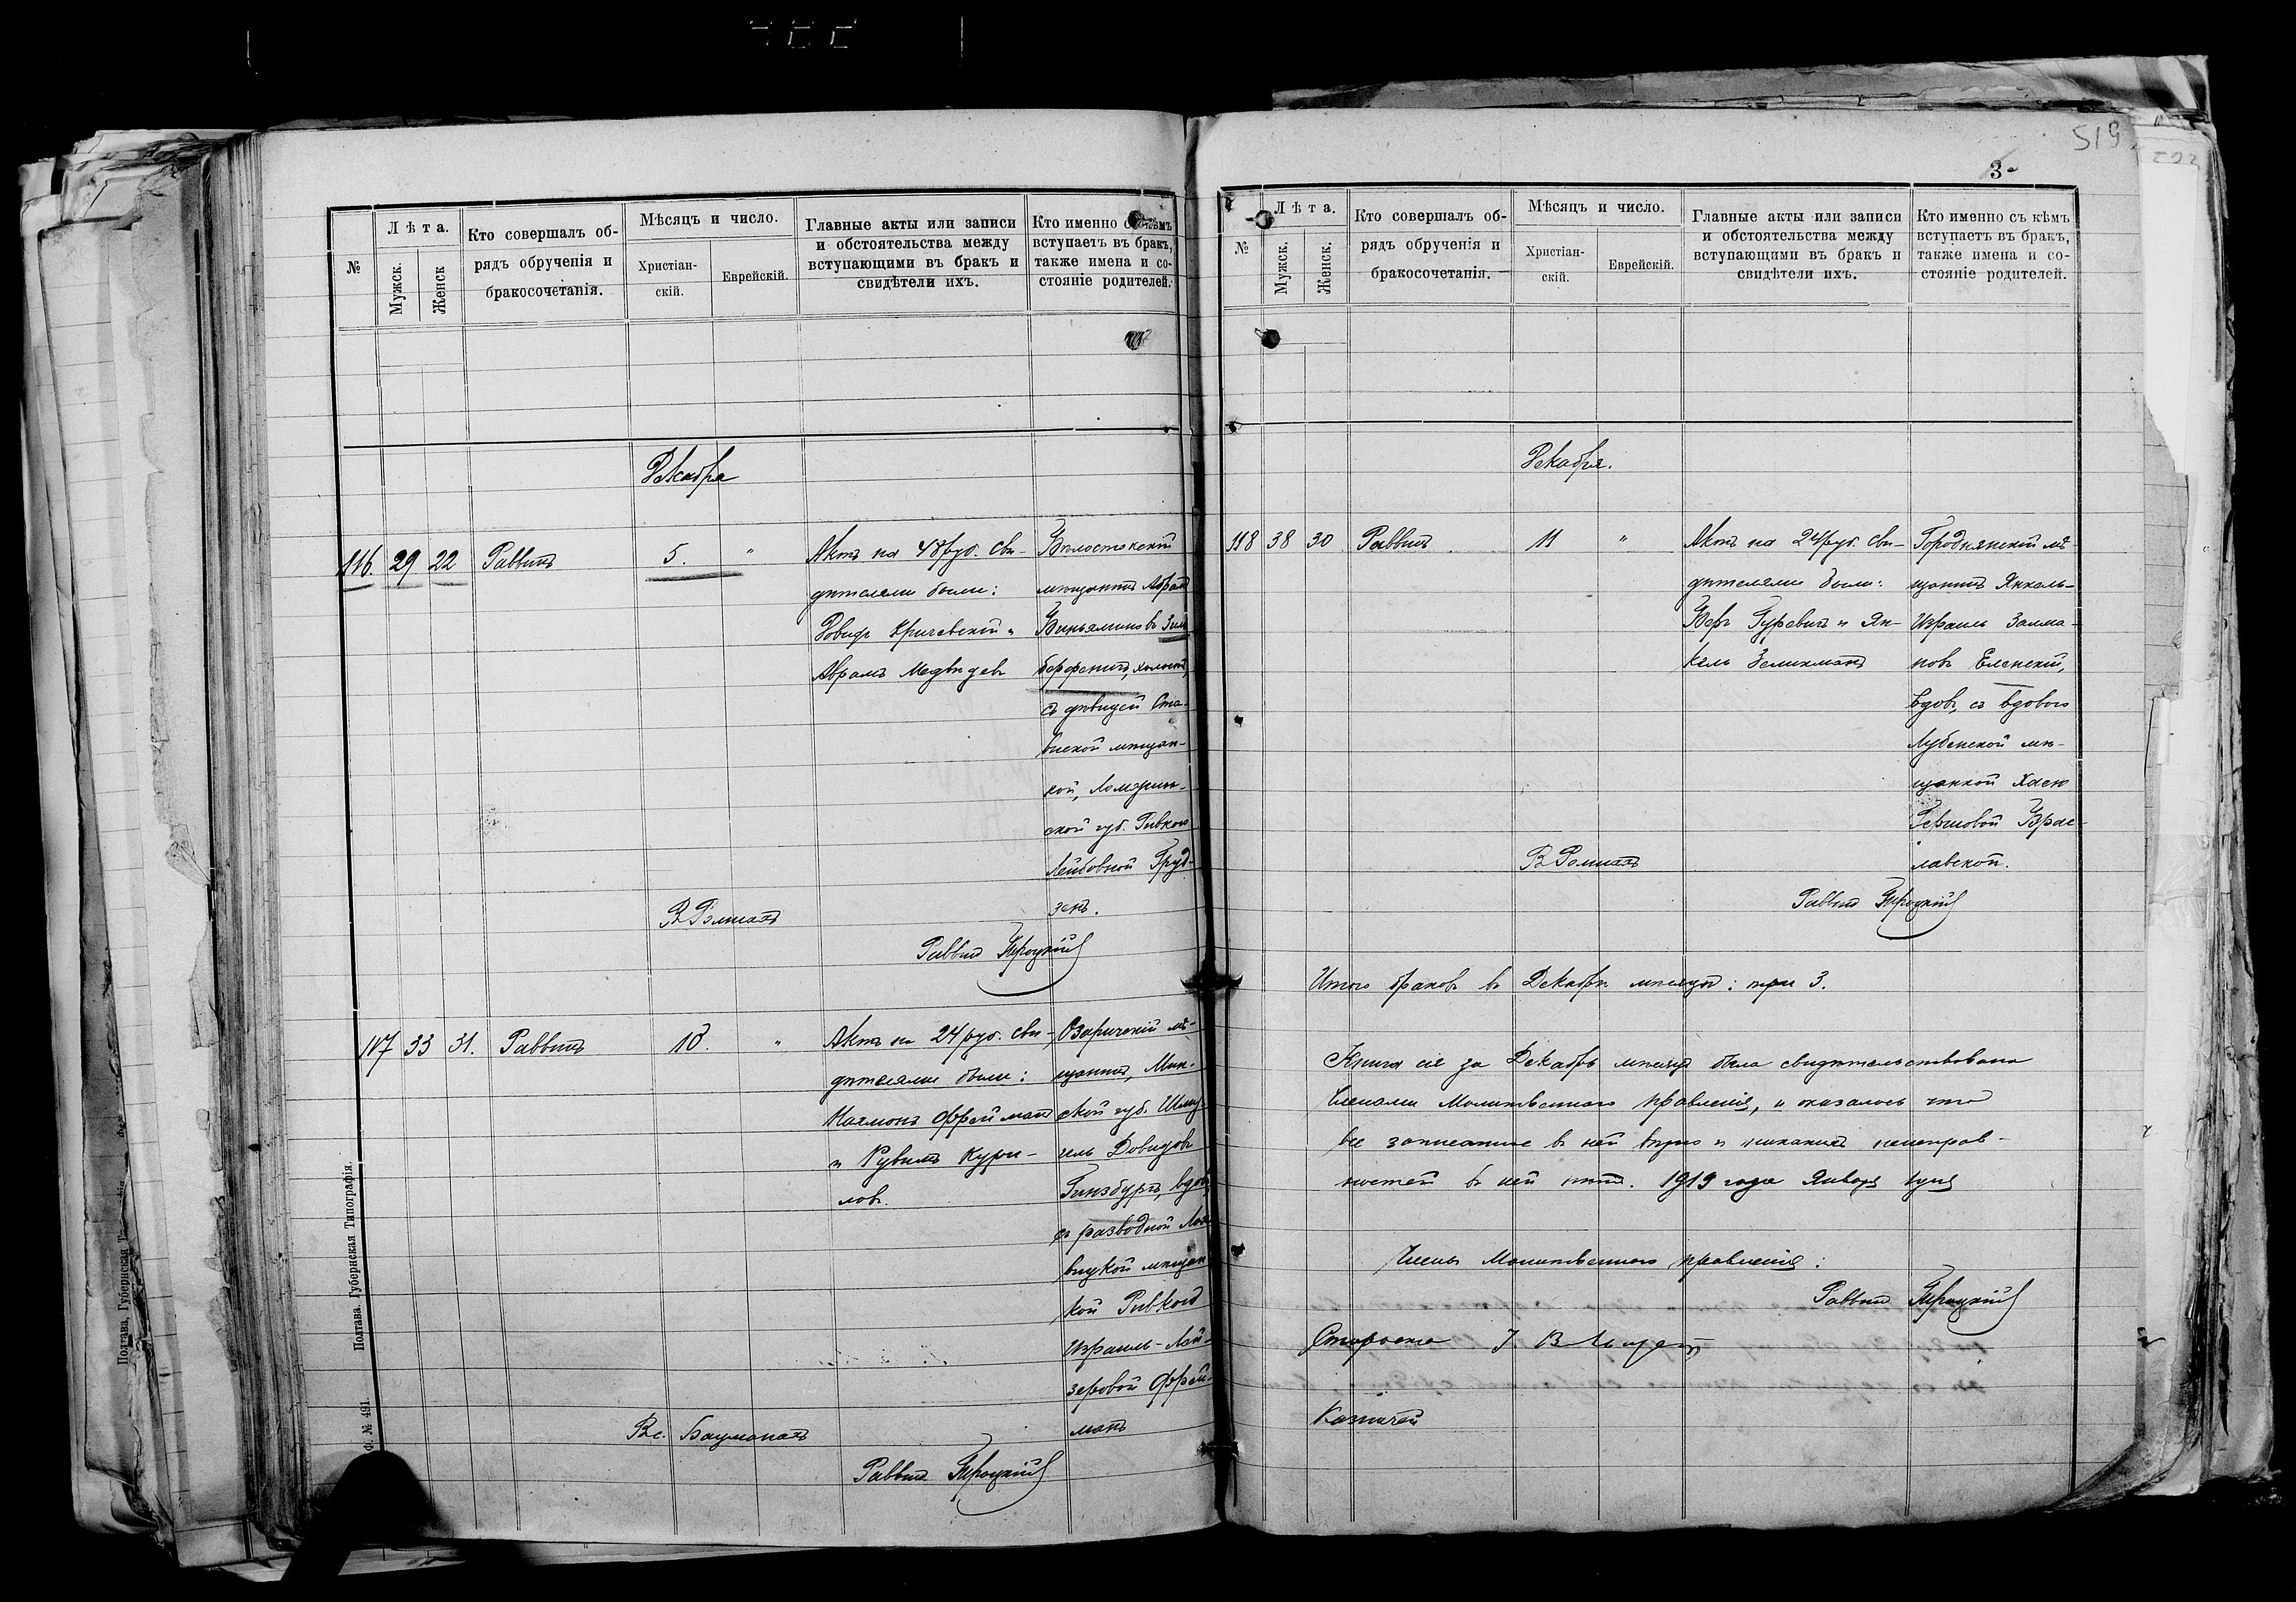 519
3
№
Лѣта.
Мужск.
Женск
Кто совершалъ об-
рядъ обрученія и
бракосочетанія.
Мѣсяцъ и число.
Христіан-
скій.
Еврейскій.
Главные акты или записи
и обстоятельства между
вступающими въ бракъ и
свидѣтели ихъ.
Кто именно съ кѣмъ
вступаетъ въ бракъ,
также имена и со-
стояніе родителей.
Декабря
116. 29 22 Раввинъ 5. "
Актъ на 48 руб. Сви-
дѣтелями были:
Довидъ Кричевскій и
Аврамъ Медвѣдевъ
Бѣлостокскій
мѣщанинъ Абрамъ
Биньяминовъ Зиль
берфенигъ, холостъ,
съ дѣвицей Ста-
виской мѣщан-
кой, Ломжин-
ской губ. Ривкою
Лейбовной Груд-
зенъ.
Раввинъ Тироцкій
117 33 31. Раввинъ 10. "
Актъ на 24 руб. Сви-
дѣтелями были:
Калмонъ Фрейманъ
и Рувимъ Кури-
ловъ.
Озаричскій мѣ-
щанинъ, Мин-
ской губ. Шму-
гель Довидовъ
Гинзбургъ, вдовъ,
съ разводной
вицкой мѣщан
кой Ривкою
Израиль-Лей-
зеровой Фрей-
манъ
Вс. Бауманъ
Раввинъ Тироцкій
Полтава. Губернская Типографія.
Ф. № 491.
Полтава. Губернская
№
Лѣта.
Мужск.
Женск.
Кто совершалъ об-
рядъ обрученія и
бракосочетанія.
Мѣсяцъ и число.
Христіан-
скій.
Еврейскій.
Главные акты или записи
и обстоятельства между
вступающими въ бракъ и
свидѣтели ихъ.
Кто именно съ кѣмъ
вступаетъ въ бракъ,
также имена и со-
стояніе родителей.
Декабря.
118 38 30 Раввинъ 11 "
Актъ на 24 руб. Сви-
дѣтелями были:
Беръ Гуревичъ и Ян-
кель Зелихманъ
Городнянскій мѣ
щанинъ Янкель-
Израиль Залма-
новъ Еленскій,
вдовъ, съ вдовою
Лубенской мѣ-
щанкой Хаею
Гершовой Брас-
лавской.
Раввинъ Тироцкій
Итого браковъ въ Декабрѣ мѣсяцѣ: три 3.
Книга сія за Декабрь мѣсяцъ была свидѣтельствована
Членами Молитвеннаго правленія, и оказалось что
все записанное въ ней вѣрно и никакихъ неисправ-
ностей въ ней нѣтъ. 1919 года Января 1 дня
Члены Молитвеннаго правленія:
Раввинъ Тироцкій
Староста
Казначей